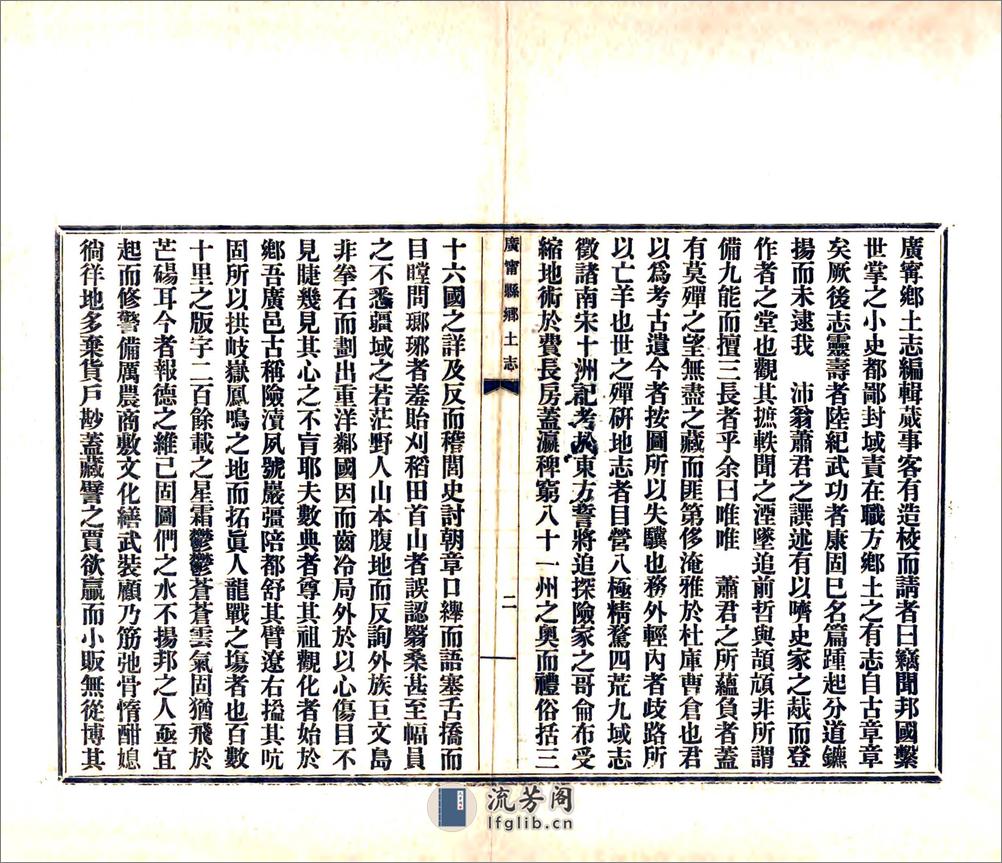 廣寗鄉土志編輯蕆事客有造棱而請者曰竊聞邦國繫
世掌之小史都鄙封域責在職方鄉土之有志自古章章
矣厥後志靈壽者陸紀武功者康固已名篇踵起分道鑣
揚而未逮我　沛翁蕭君之譔述有以嚌史家之胾而登
作者之堂也觀其摭軼聞之湮墜追前哲與頡頏非所謂
備九能而擅三長者乎余曰唯唯　蕭君之所蘊負者蓋
有莫殫之望無盡之藏而匪第侈淹雅於杜庫曹倉也君
以爲考古遺今者按圖所以失驥也務外輕內者歧路所
以亡羊也世之殫研地志者目營八極精騖四荒九域志
徵諸南宋十洲記考於東方誓將追探險家之哥侖布受
縮地術於費長房蓋瀛稗窮八十一州之奧而禮俗括三
廣寗縣鄉土志
二
十六國之詳及反而稽閭史討朝章口纆而語塞舌撟而
目瞠問瑯琊者羞貽刈稻田首山者誤認翳桑甚至幅員
之不悉疆域之若茫野人山本腹地而反詢外族巨文島
非拳石而劃出重洋鄰國因而齒冷局外於以心傷目不
見睫幾見其心之不肓耶夫數典者尊其祖觀化者始於
鄉吾廣邑古稱險瀆夙號巖彊陪都舒其臂遼右搤其吭
固所以拱岐嶽鳳鳴之地而拓眞人龍戰之塲者也百數
十里之版字二百餘載之星霜鬱鬱蒼蒼雲氣固猶飛於
芒碭耳今者報德之維已固圖們之水不揚邦之人亟宜
起而修警備厲農商敷文化繕武裝顧乃筋弛骨惰酣媳
徜徉地多棄貨戶尠蓋藏譬之賈欲贏而小販無從博其
流芳阁
lfglib.cn